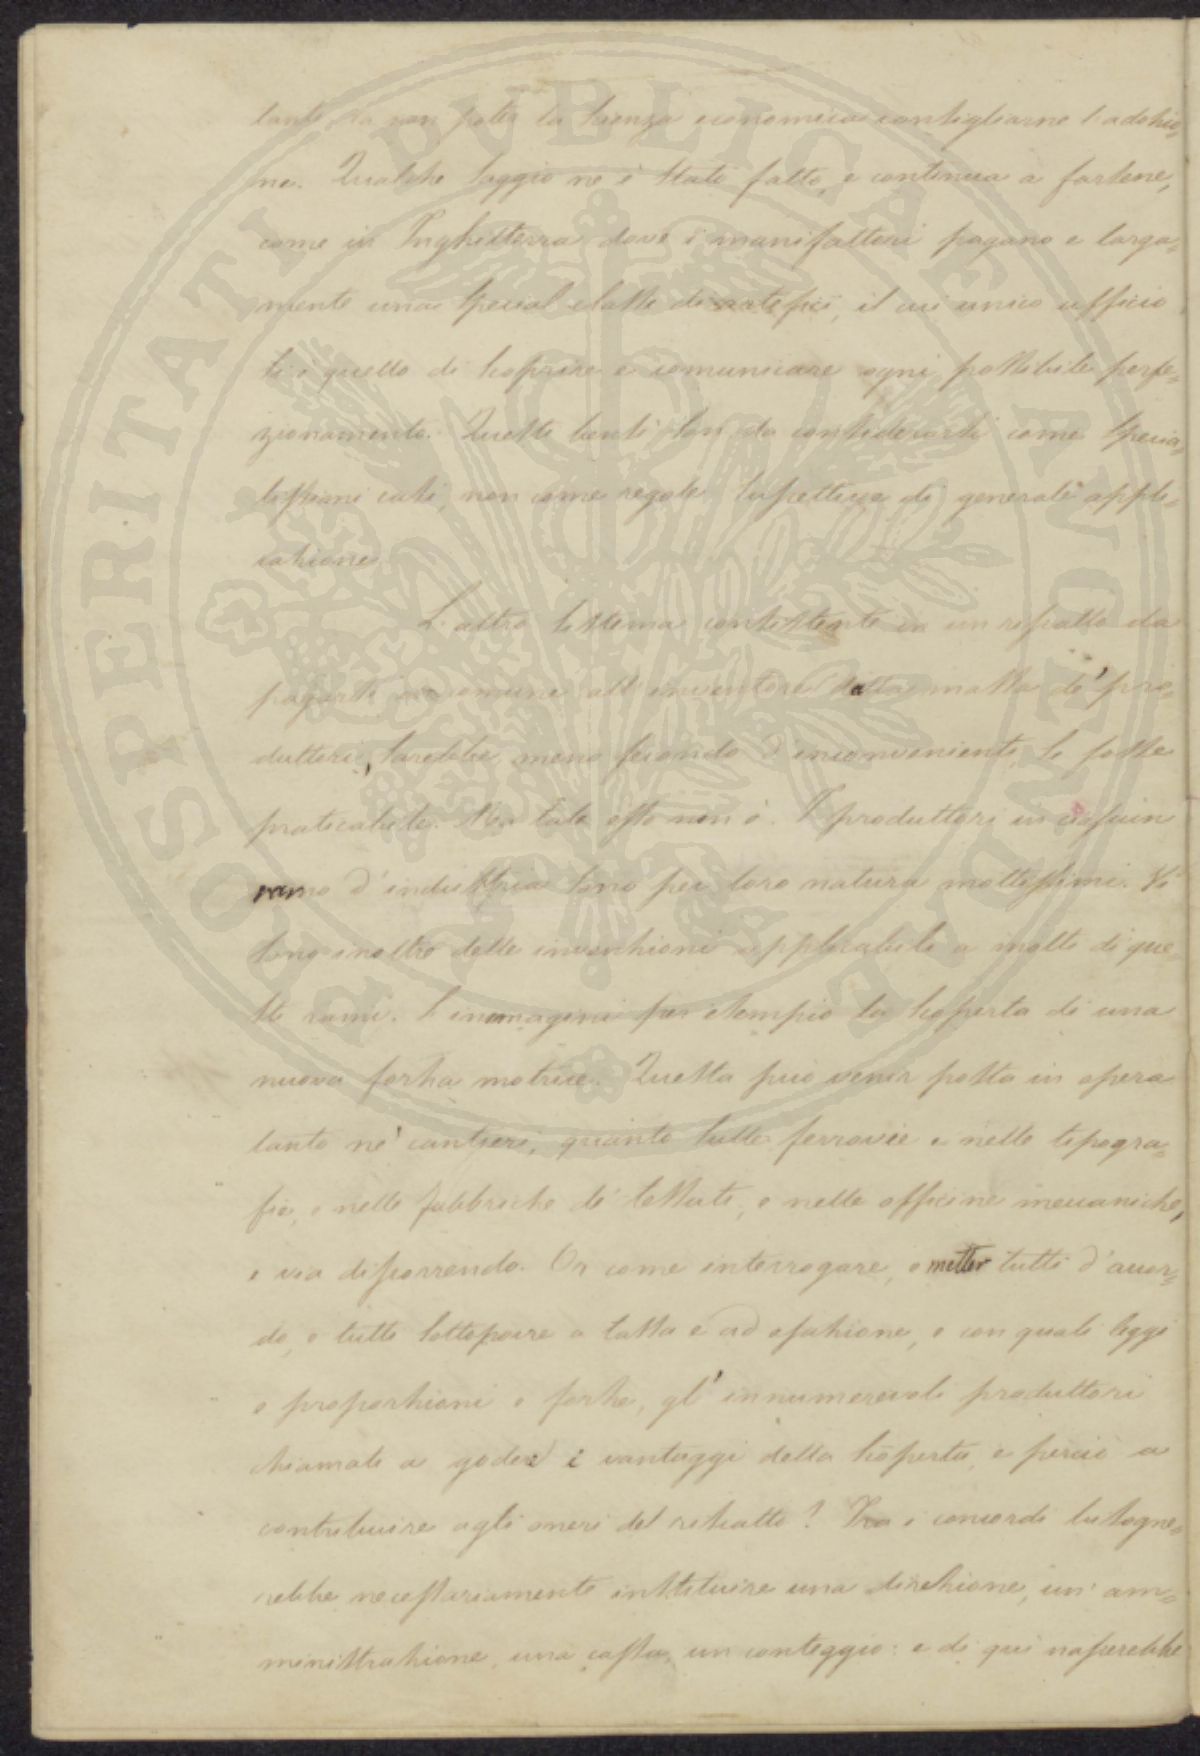 tanto da non poter la scienza economica consigliarne l'adozio-
ne. Qualche saggio ne è stato fatto, e continua a farsene,
come in Inghilterra dove i manifattori pagano e larga-
mente una special classe di artefici, il cui unico ufficio
si è quello di scoprire e comunicare ogni possibile perfe-
zionamento. Questi tenti son da considerarsi come specia-
lissimi casi, non come regole suscettive di generale appli-
cazione.
L'altro sistema consistente in un riscatto da
pagarsi in comune all'inventore dalla massa de' pro-
duttori, sarebbe meno fecondo d'inconvenienti, se fosse
praticabile. Ma tale esso non è. I produttori in ciascun
ramo d'industria sono per loro natura moltissimi. Vi
sono inoltre delle invenzioni applicabili a molti di que-
sti rami. S'immagini per esempio la scoperta di una
nuova forza motrice. Questa può venir posta in opera
tanto ne' cantieri, quanto sulle ferrovie e nelle tipogra-
fie, e nelle fabbriche di tessuti, e nelle officine meccaniche,
e via discorrendo. Or come interrogare, e metter tutti d'accor-
do, e tutti sottoporre a tassa e ad esazione, e con quali leggi
o proporzioni o forze, gl'innumerevoli produttori
chiamati a godere i vantaggi della scoperta, e perciò a
contribuire agli oneri del riscatto? Fra i concordi bisogne-
rebbe necessariamente instituire una direzione, un'am-
ministrazione, una cassa, un conteggio: e di qui nascerebbe
PROSPERITATI PUBLICAE AVOLENDAE